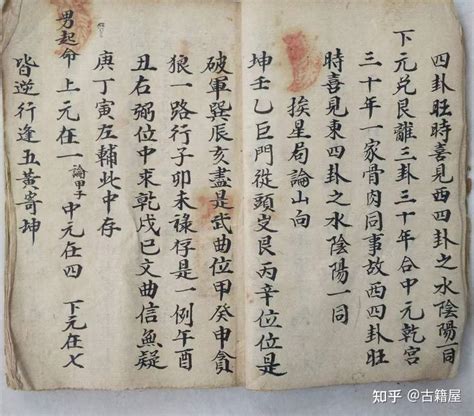 四卦旺時喜見西四卦之水陰陽一同
下元兌艮離三卦三十年合中元乾宮
三十年一家骨肉同事故西四卦旺
時喜見東四卦之水陰陽一同
挨星局論山向
坤壬乙巨門從頭艮丙辛位位是
破軍巽辰亥盡是武曲位甲癸申貪
狼一路行子卯未祿存是一例午酉
丑右弼位中來乾戌巳文曲信魚疑
庚丁寅左輔此中存
男起命 上元在一論甲子 中元在四 下元在七
皆逆行逢五黃寄坤
知乎 @古籍屋